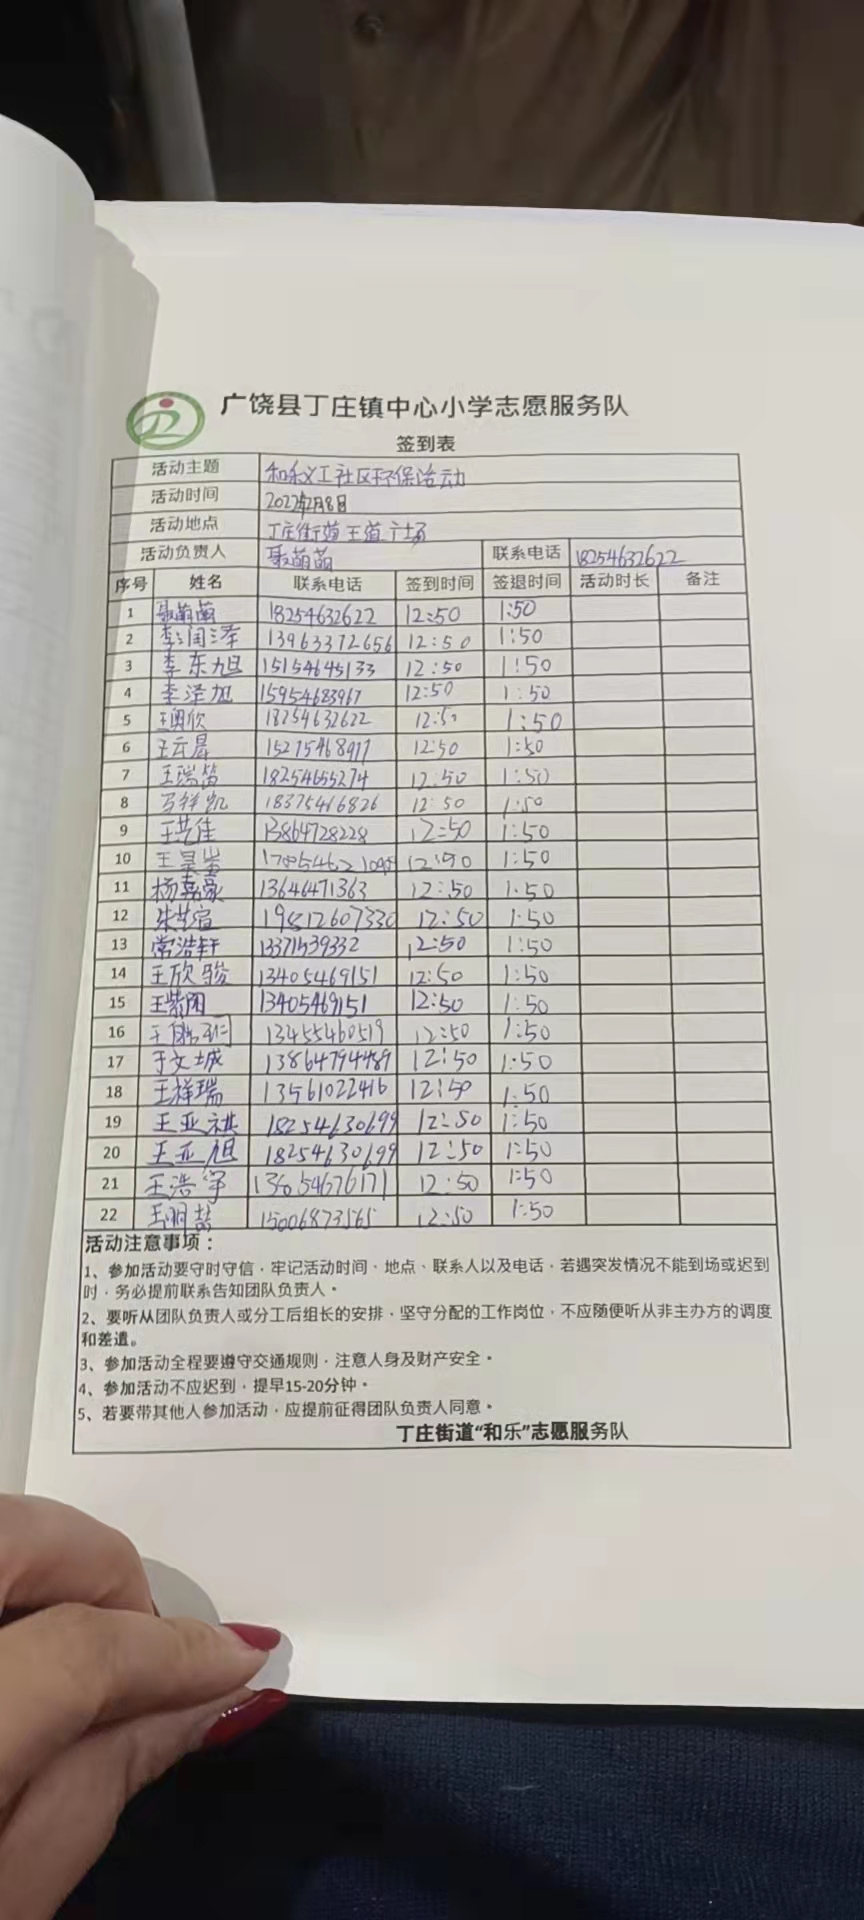 广饶县丁庄镇中心小学志愿服务队
签到表
活动主题 和乐义工社区环保活动
活动时间 2022年2月8日
活动地点 丁庄街道王道广场
活动负责人 聂萌萌 联系电话 18254632622
序号 姓名 联系电话 签到时间 签退时间 活动时长 备注
1 聂萌萌 18254632622 12:50 1:50
2 李润泽 13963372656 12:50 1:50
3 李东旭 15154645133 12:50 1:50
4 李泽旭 15954683967 12:50 1:50
5 王奥欣 18254632622 12:50 1:50
6 王云晨 15275468917 12:50 1:50
7 王瑞笛 18254655274 12:50 1:50
8 马祥凯 18375416826 12:50 1:50
9 王艺佳 13864728228 12:50 1:50
10 12:50 1:50
11 杨嘉豪 13646471363 12:50 1:50
12 朱梦瑄 19812607330 12:50 1:50
13 常浩轩 13371539332 12:50 1:50
14 王欣骏 13405469151 12:50 1:50
15 13405469151 12:50 1:50
16 13455460519 12:50 1:50
17 于文城 13864794489 12:50 1:50
18 王祥瑞 13561022416 12:50 1:50
19 王亚祺 18254630699 12:50 1:50
20 王亚旭 18254630699 12:50 1:50
21 王浩宇 12:50 1:50
22 王明喆 15006873565 12:50 1:50
活动注意事项：
1、参加活动要守时守信，牢记活动时间、地点、联系人以及电话，若遇突发情况不能到场或迟到
时，务必提前联系告知团队负责人。
2、要听从团队负责人或分工后组长的安排，坚守分配的工作岗位，不应随便听从非主办方的调度
和差遣。
3、参加活动全程要遵守交通规则，注意人身及财产安全。
4、参加活动不应迟到，提早15-20分钟。
5、若要带其他人参加活动，应提前征得团队负责人同意。
丁庄街道“和乐”志愿服务队